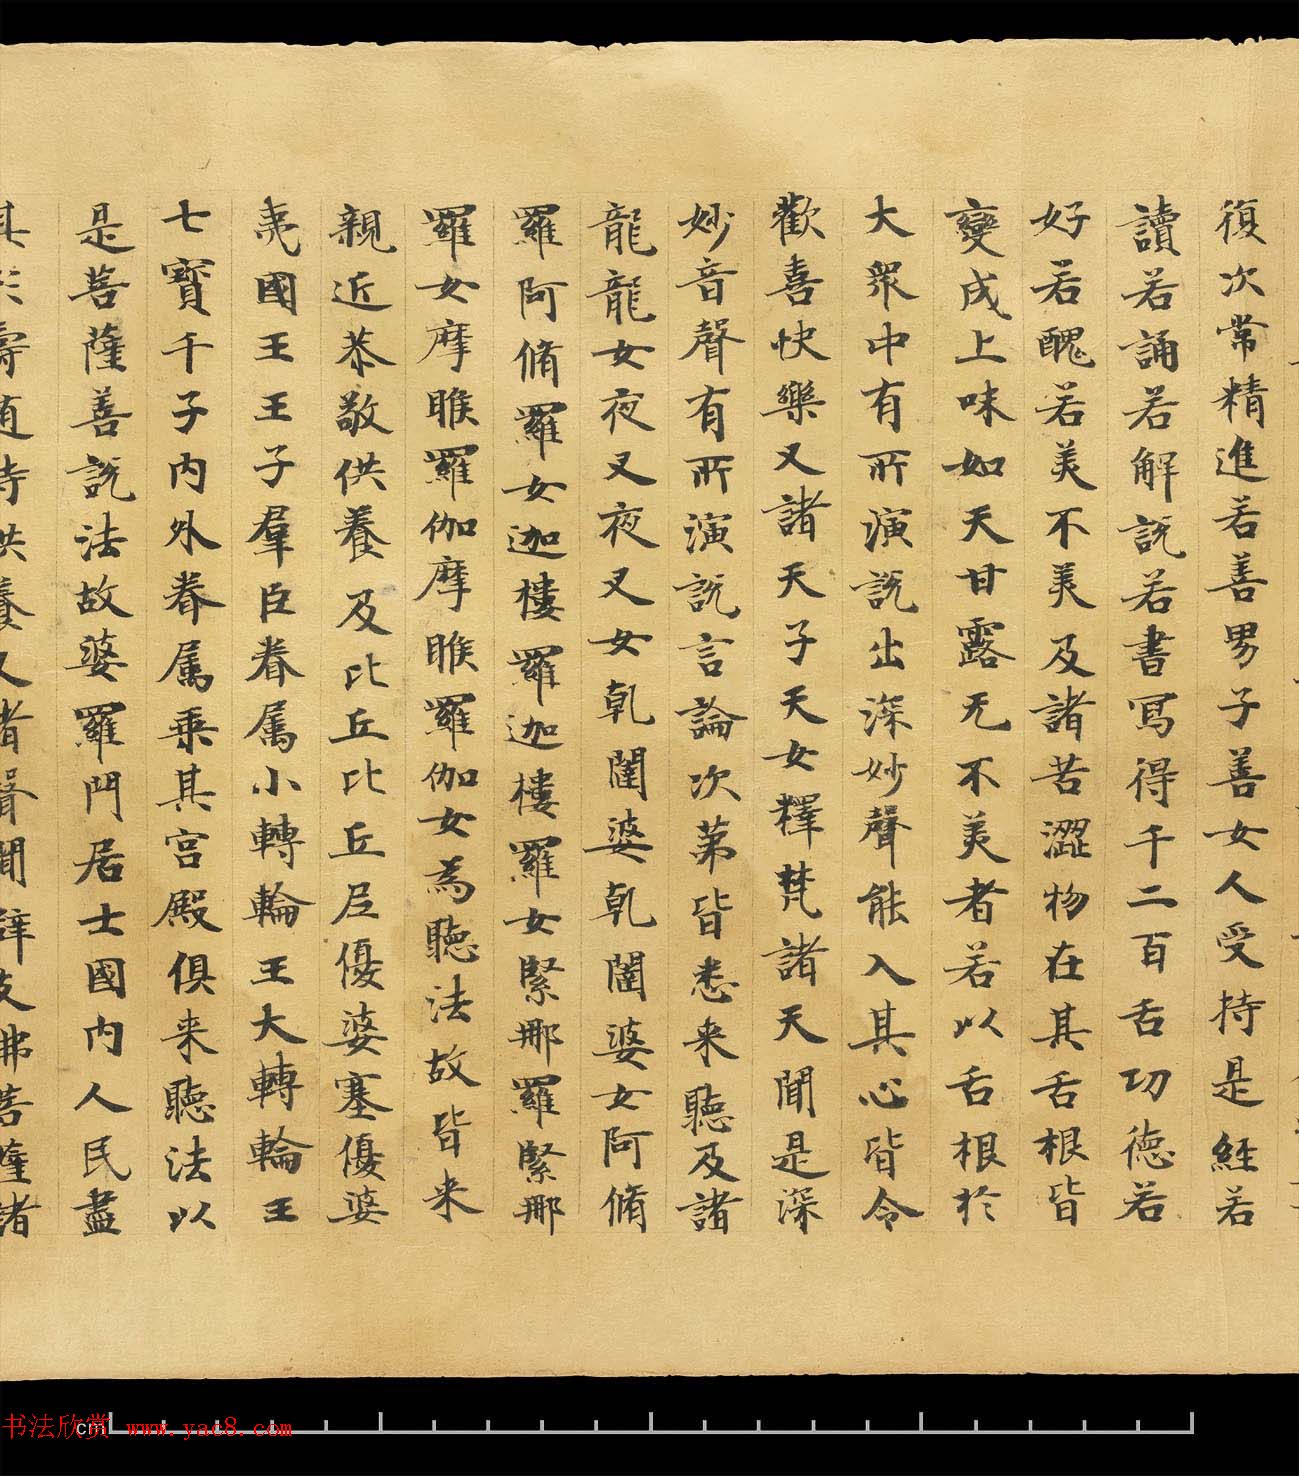 復次常精進若善男子善女人受持是經若
讀若誦若解說若書寫得千二百舌功德若
好若醜若美不美及諸苦澀物在其舌根皆
變成上味如天甘露无不美者若以舌根於
大眾中有所演說出深妙聲能入其心皆令
歡喜快樂又諸天子天女釋梵諸天聞是深
妙音聲有所演說言論次第皆悉来聽及諸
龍龍女夜叉夜叉女乹闥婆乹闥婆女阿脩
羅阿脩羅女迦樓羅迦樓羅女緊那羅緊那
羅女摩睺羅伽摩睺羅伽女為聽法故皆来
親近恭敬供養及比丘比丘尼優婆塞優婆
夷國王王子羣臣眷属小轉輪王大轉輪王
七寳千子內外眷属乗其宮殿俱来聽法以
是菩薩善說法故婆羅門居士國內人民盡
其形壽随侍供養又諸聲聞辟支佛菩薩諸
书法欣赏 www.yac8.com
cm